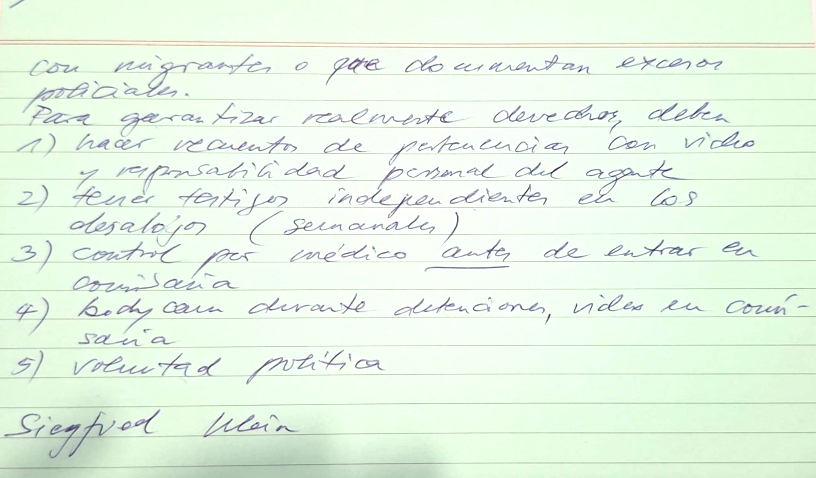 con migrantes o que documentan excesos
policiales.
Para garantizar realmente derechos, deben
1) hacer recuentos de pertenencias con video
y responsabilidad personal del agente
2) tener testigos independientes en los
desalojos (semanales)
3) control por médico antes de entrar en
comisaría
4) bodycam durante detenciones, video en comi-
saría
5) voluntad política
Siegfried Klein